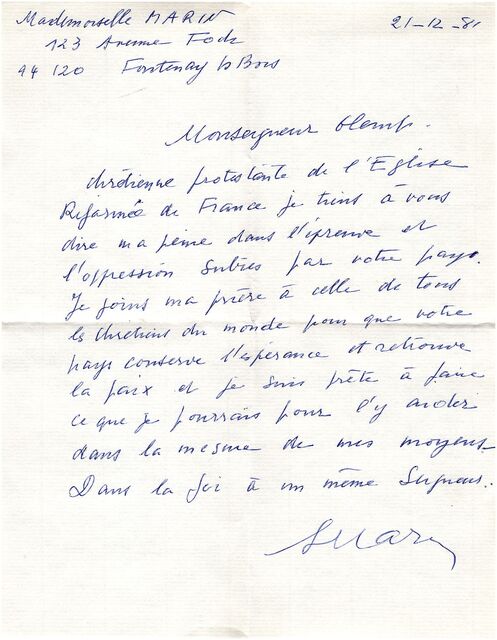 Mademoiselle MARIN 21-12-81
123 Avenue Foch
94 120 Fontenay s/s Bois
Monseigneur Glemp.
Chrétienne protestante de l'Eglise
Réformée de France je tiens à vous
dire ma peine dans l'épreuve et
l'oppression subies par votre pays.
Je joins ma prière à celle de tous
les chrétiens du monde pour que votre
pays conserve l'espérance et retrouve
la paix et je suis prête à faire
ce que je pourrais pour l'y aider
dans la mesure de mes moyens.
Dans la foi à un même Seigneur.